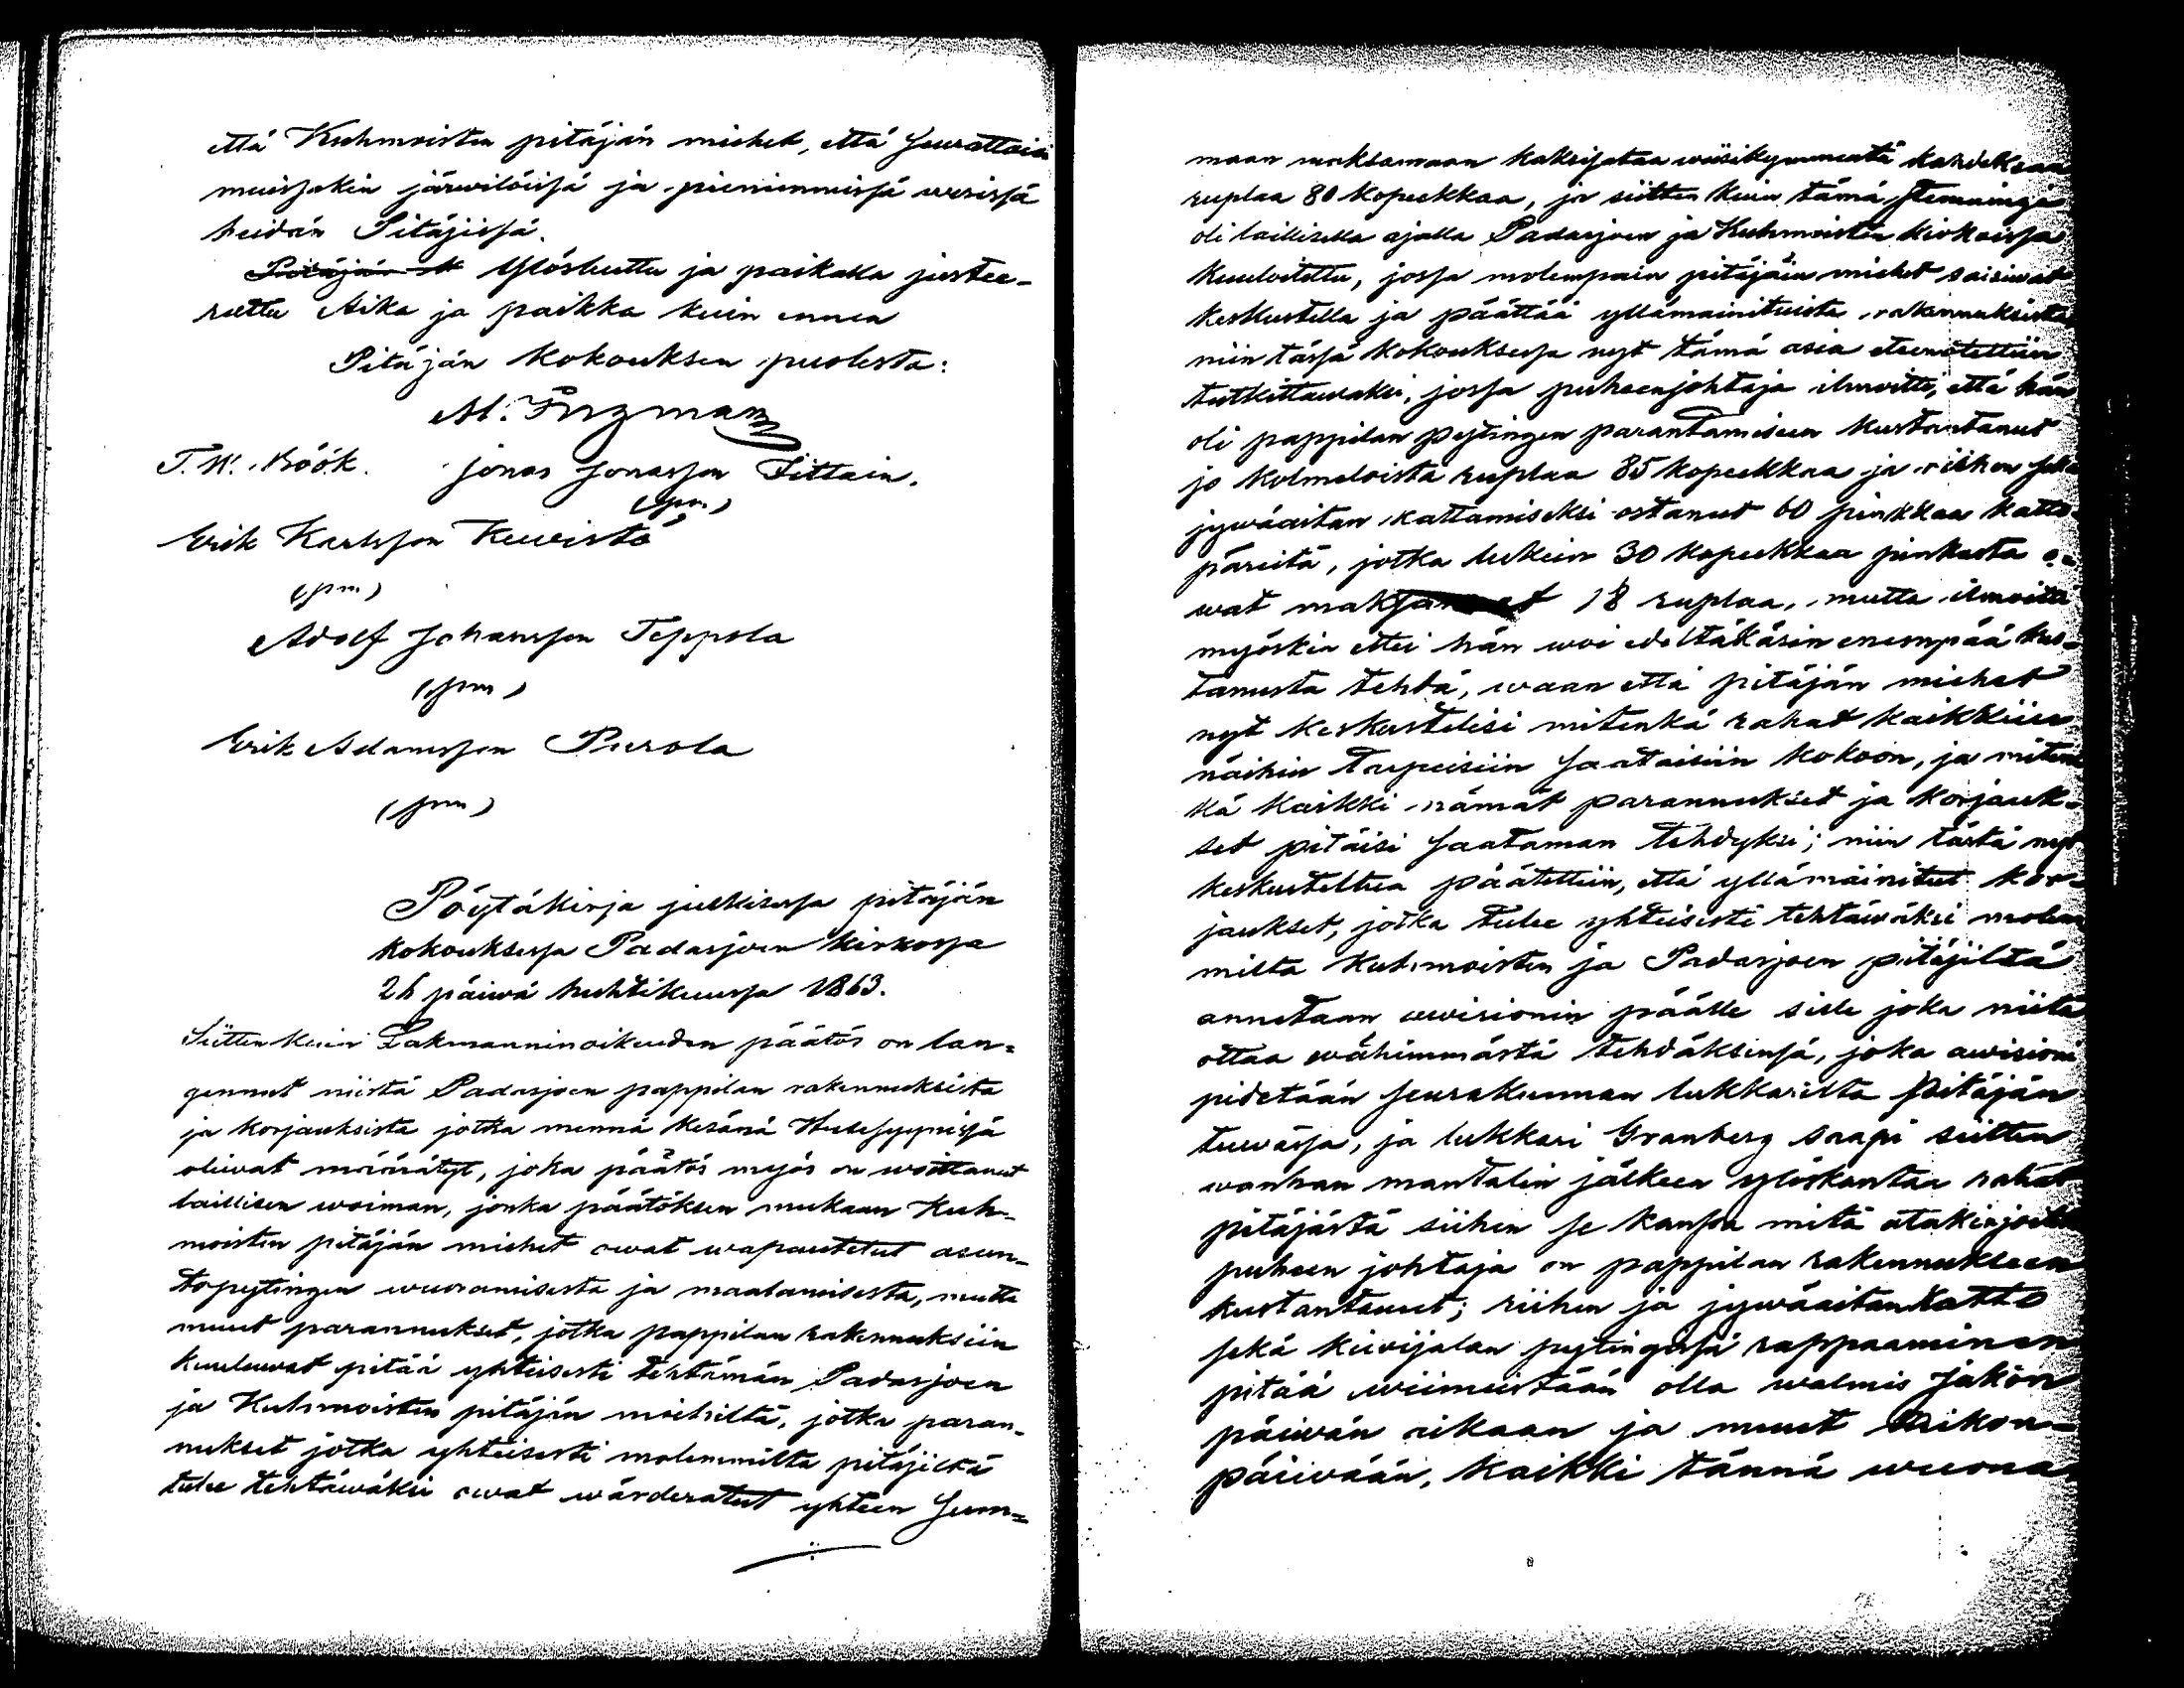 että Kuhmoisten pitäjän miehet, että seurattaisi
muissakin järwilöissä ja pienimmissä wesissä
heidän Pitäjissä.
Ylösluettu ja paikalla justee-
rattu Aika ja paikka kuin ennen
Pitäjän Kokouksen puolesta:
Al. Ingman
T. W. Böök. Jonas Jonasson Tittain.
(pm)
Erik Karlsson Kuuisto
(pm)
Adolf Johansson Seppola
(pm)
Erik Adamsson Purola
(pm)
Pöytäkirja julkisessa pitäjän
kokouksessa Padasjoen kirkossa
26 päiwä huhtikuussa 1863.
Siitten kuin Lakmanninoikeuden päätös on lan=
gennut niistä Padasjoen pappilan rakennuksista
ja korjauksista jotka mennä kesänä Husesyynissä
oliwat määrätyt, joka päätös myös on woittanut
laillisen woiman, jonka päätöksen mukaan Kuh-
moisten pitäjän miehet owat wapautetut asun-
topytingen wuoramisesta ja maalamisesta, mutta
muut parannukset, jotka pappilan rakennuksiin
kuuluwat pitää yhteisesti tehtämän Padasjoen
ja Kuhmoisten pitäjän miehiltä, jotka paran-
nukset jotka yhteisesti molemmilta pitäjiltä
tulee tehtäwäksi owat wärderatut yhteen sum=
maan maksamaan kaksisataa wiisikymmentä kahdeksan
ruplaa 80 kopeekkaa, ja siitten kuin tämä stemninge
oli laillisella ajalla Padasjoen ja Kuhmoisten kirkoissa
kuulutettu, jossa molempain pitäjäin miehet saisiwat
keskustella ja päättää yllämainituista rakennuksista
niin tässä kokouksessa nyt tämä asia eteenotettiin
tutkittawaksi, jossa puheenjohtaja ilmoitti, että hän
oli pappilan pytingen parantamiseen kustantanut
jo kolmetoista ruplaa 85 kopeekkaa ja riihen sekä
jywäaitan kattamiseksi ostanut 60 pinkkaa katto-
päreitä, jotka lukein 30 kopeekkaa pinkasta o-
wat maksaneet 18 ruplaa, mutta ilmoitti
myöskin ettei hän woi edeltäkäsin enempää kus-
tanusta tehdä, waan että pitäjän miehet
nyt keskustelisi mitenkä rahat kaikkiin
näihin tarpeisiin saataisiin kokoon, ja miten
kä kaikki nämät parannukset ja korjauk-
set pitäisi saataman tehdyksi; niin tästä nyt
keskusteltua päätettiin, että yllämainitut kor-
jaukset, jotka tulee yhteisesti tehtäwäksi molem
milta Kuhmoisten ja Padasjoen pitäjiltä
annetaan auvisionin päälle sille joka niitä
ottaa wähimmästä tehdäksensä, joka awisioni
pidetään seurakunnan lukkarilta pitäjän
tuwassa, ja lukkari Granberg saapi siitten
wanhan mantalin jälkeen ylöskantaa rahat
pitäjästä siihen se kanssa mitä
puheen johtaja on pappilan rakennukseen
kustantanut; riihen ja jywäaitan katto
sekä kiwijalan pytingissä rappaaminen
pitää wiimeistään olla walmis Jakon
päiwän aikaan ja muut Mikon=
päiwään, kaikki tännä wuona